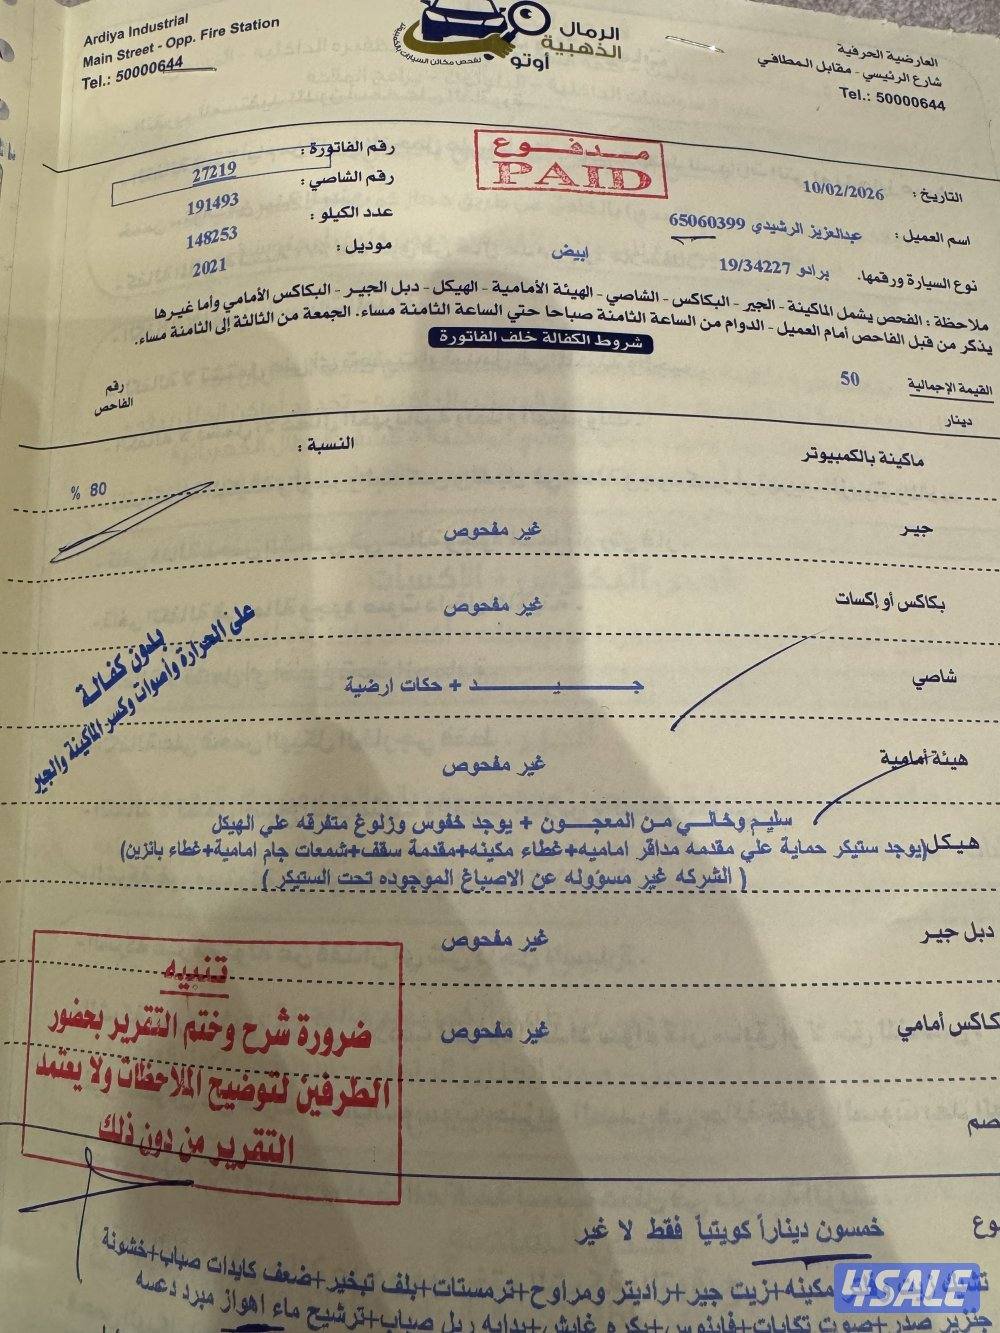 Ardiya Industrial
Main Street - Opp. Fire Station
Tel.: 50000644
الرمال
الذهبية
أوتو
العارضية الحرفية
شارع الرئيسي - مقابل المطافي
Tel.: 50000644
مدفوع
PAID
رقم الفاتورة : 27219
رقم الشاصي : 191493
عدد الكيلو : 148253
موديل : 2021
التاريخ : 10/02/2026
اسم العميل : عبدالعزيز الرشيدي 65060399
نوع السيارة ورقمها. برادو 19/34227 ابيض
ملاحظة : الفحص يشمل الماكينة - الجير - البكاكس - الشاصي - الهيئة الأمامية - الهيكل - دبل الجير - البكاكس الأمامي وأما غيرها
يذكر من قبل الفاحص أمام العميل - الدوام من الساعة الثامنة صباحا حتي الساعة الثامنة مساء. الجمعة من الثالثة إلى الثامنة مساء.
شروط الكفالة خلف الفاتورة
القيمة الإجمالية 50
دينار
رقم
الفاحص
ماكينة بالكمبيوتر النسبة : 80 %
جير غير مفحوص
بكاكس أو إكسات غير مفحوص
شاصي جـيـد + حكات ارضية
بدون كفالة
على الحرارة وأصوات وكسر الماكينة والجير
هيئة أمامية غير مفحوص
سليم وخالي من المعجون + يوجد خفوس وزلوغ متفرقه علي الهيكل
هيكل (يوجد ستيكر حماية علي مقدمه مداقر اماميه+غطاء مكينه+مقدمة سقف+شمعات جام امامية+غطاء بانزين)
( الشركه غير مسؤوله عن الاصباغ الموجوده تحت الستيكر )
دبل جير غير مفحوص
كاكس أمامي غير مفحوص
تنبيه
ضرورة شرح وختم التقرير بحضور
الطرفين لتوضيح الملاحظات ولا يعتمد
التقرير من دون ذلك
صم
وع خمسون ديناراً كويتياً فقط لا غير
مكينه+زيت جير+راديتر ومراوح+ترمستات+بلف تبخير+ضعف كايدات صباب+خشونة
جنزير صدر+صوت تكايات+فاينوس+بكره غايش+بدايه ريل صباب+ترشيح ماء اهواز مبرد دعسه
4SALE